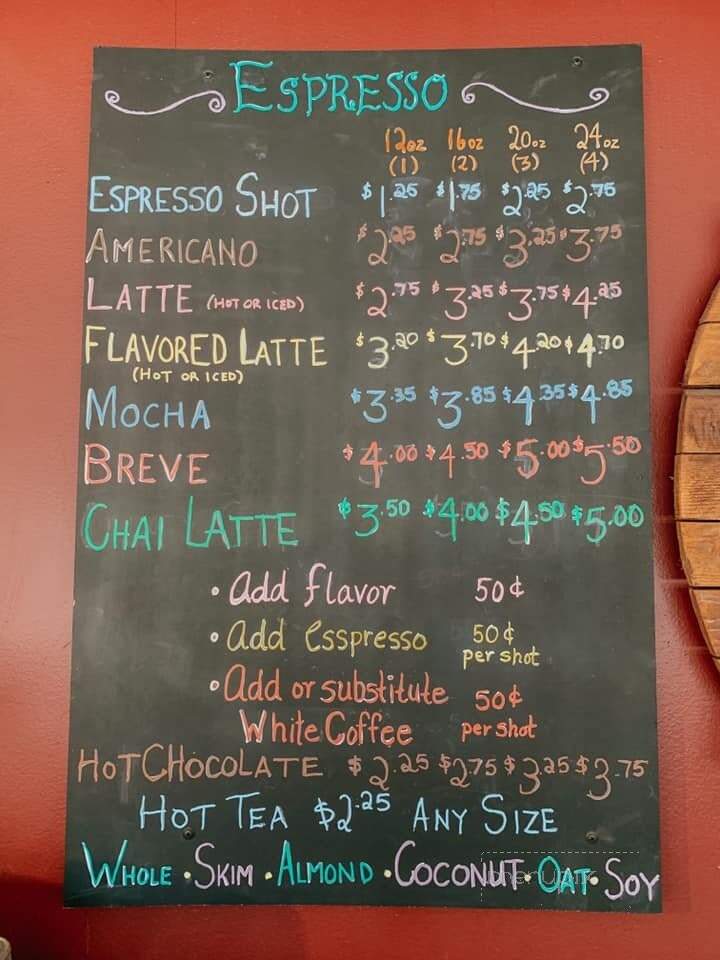 ESPRESSO
12oz 16oz 20oz 24oz
(1) (2) (3) (4)
ESPRESSO SHOT $1.25 $1.75 $2.25 $2.75
AMERICANO $2.25 $2.75 $3.25 $3.75
LATTE (HOT OR ICED) $2.75 $3.25 $3.75 $4.25
FLAVORED LATTE $3.20 $3.70 $4.20 $4.70
(HOT OR ICED)
MOCHA $3.35 $3.85 $4.35 $4.85
BREVE $4.00 $4.50 $5.00 $5.50
CHAI LATTE $3.50 $4.00 $4.50 $5.00
• Add flavor 50¢
• Add esspresso 50¢
per shot
• Add or substitute 50¢
White Coffee per shot
HOT CHOCOLATE $2.25 $2.75 $3.25 $3.75
HOT TEA $2.25 ANY SIZE
WHOLE • SKIM • ALMOND • COCONUT • OAT • SOY